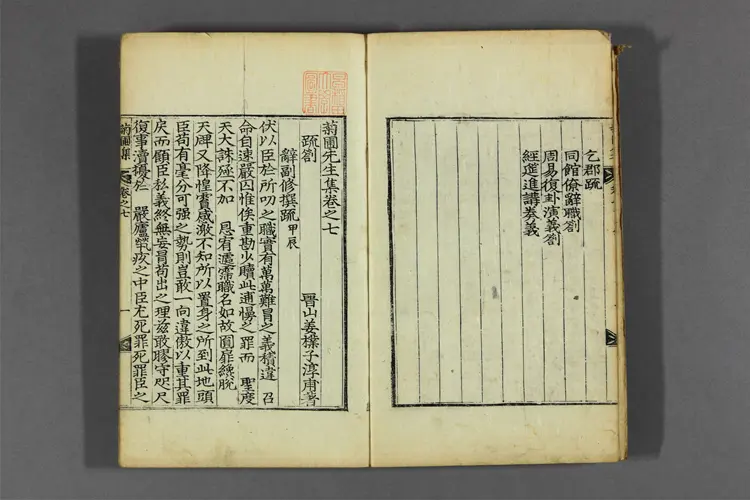 乞郡疏
同館僚辭職劄
周易復卦演義劄
經筵進講奏義
菊圃先生集卷之七
晋山姜樸子淳甫著
疏劄
辭副修撰疏 甲辰
伏以臣於所叨之職實有萬萬難冒之義積違 召
命自速嚴囚惟俟重勘少贖此逋慢之罪而 聖度
天大誅殛不加 恩宥遽霈職名如故圜扉纔脫
天牌又降惶霣感激不知所以置身之所到此地頭
臣苟有毫分可强之勢則豈敢一向違傲以重其罪
戾而顧臣私義終無妄冒苟出之理玆敢膠守咫尺
復事瀆擾於 嚴廬煢疚之中臣尤死罪死罪臣之
菊圃集
卷之七
一